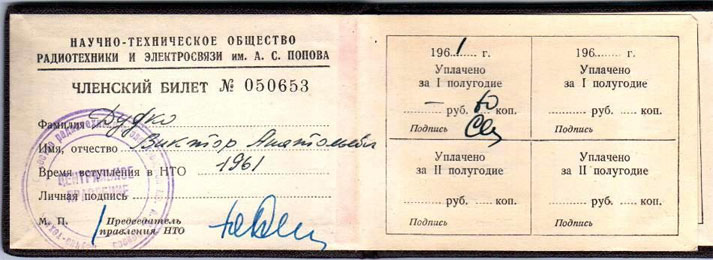 НАУЧНО-ТЕХНИЧЕСКОЕ ОБЩЕСТВО
РАДИОТЕХНИКИ И ЭЛЕКТРОСВЯЗИ им. А. С. ПОПОВА
ЧЛЕНСКИЙ БИЛЕТ № 050653
Фамилия Дудко
Имя, отчество Виктор Анатольевич
Время вступления в НТО 1961
Личная подпись
М. П. Председатель
правления НТО
ЦЕНТРАЛЬНОЕ
ПРАВЛЕНИЕ
1961 г.
Уплачено
за I полугодие
— руб. 60 коп.
Подпись
196 г.
Уплачено
за I полугодие
руб. коп.
Подпись
Уплачено
за II полугодие
руб. коп.
Подпись
Уплачено
за II полугодие
руб. коп.
Подпись